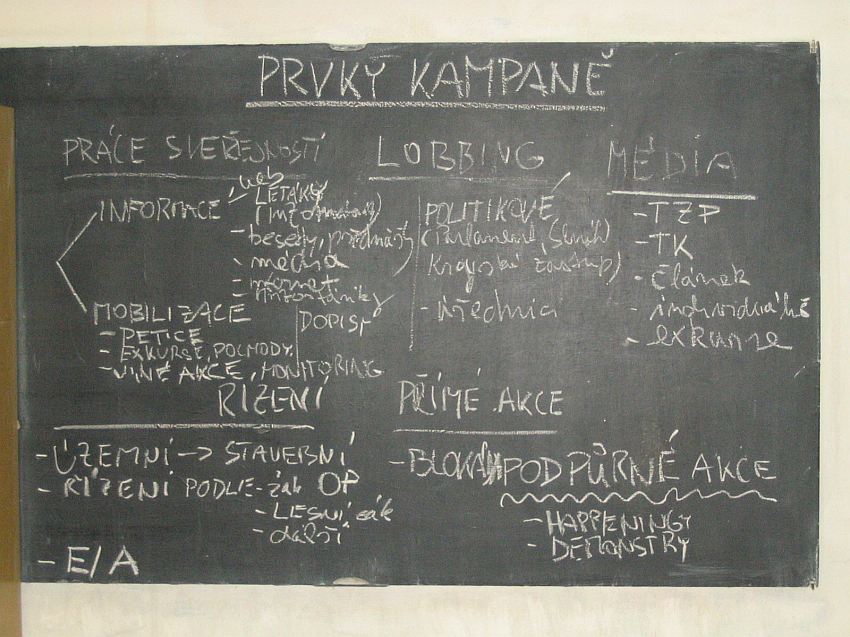 PRVKY KAMPANĚ
PRÁCE S VEŘEJNOSTÍ
INFORMACE
web
LETÁKY
- besedy, přednášky
- média
- internet
MOBILIZACE
- PETICE
- EXKURSE, POCHODY
- JINÉ AKCE, MONITORING
DOPISY
LOBBING
POLITIKOVÉ
(Parlament, Senát
Krajské zastup)
- úředníci
MÉDIA
- TZP
- TK
- článek
- individuálně
- exkurse
ŘÍZENÍ
- ÚZEMNÍ -> STAVEBNÍ
- ŘÍZENÍ PODLE - zák OP
- LESNÍ zák
- další
- E/A
PŘÍMÉ AKCE
- BLOKÁDY
PODPŮRNÉ AKCE
- HAPPENINGY
- DEMONSTRY